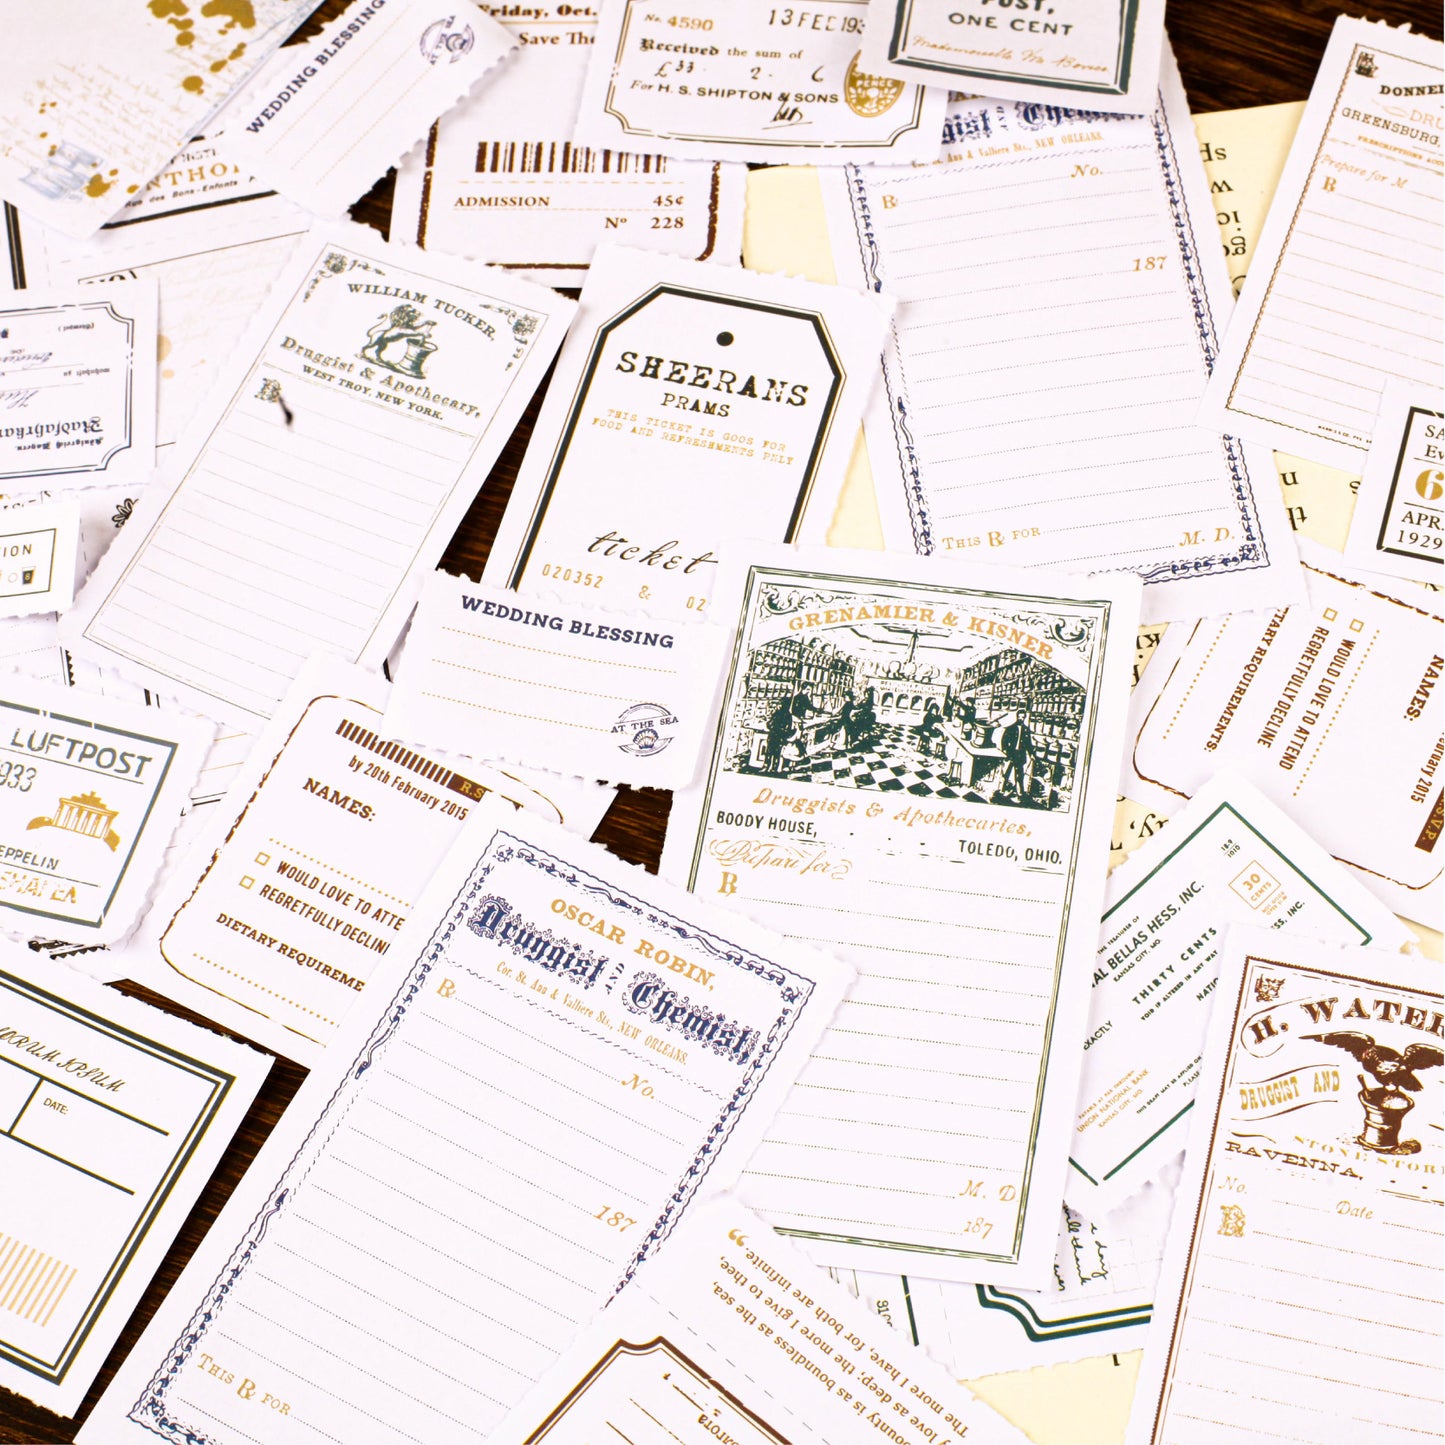 WEDDING BLESSING
Friday, Oct.
Save The
ADMISSION 45¢
Nº 228
No. 4590
13 FEB 193
Received the sum of
£33. 2. 6
For H. S. SHIPTON & SONS
POST,
ONE CENT
Druggist AND Chemist
Cor. St. Ann & Valliere Sts., NEW ORLEANS.
No.
℞
187
THIS ℞ FOR
M. D.
GREENSBURG,
Prepare for M
℞
APR.
1929
WILLIAM TUCKER,
Druggist & Apothecary,
WEST TROY, NEW YORK.
℞
SHEERANS
PRAMS
THIS TICKET IS GOOS FOR
FOOD AND REFRESHMENTS PNLY
ticket
020352 & 02
WEDDING BLESSING
AT THE SEA
GRENAMIER & KISNER
Druggists & Apothecaries,
BOODY HOUSE,
TOLEDO, OHIO.
Prepare for
℞
M. D
187
LUFTPOST
1933
by 20th February 2015
R.S
NAMES:
WOULD LOVE TO ATTE
REGRETFULLY DECLIN
DIETARY REQUIREME
NAMES:
WOULD LOVE TO ATTEND
REGRETFULLY DECLINE
TARY REQUIREMENTS:
2015
R.S.V.P.
30
CENTS
AL BELLAS HESS, INC.
KANSAS CITY, MO.
THIRTY CENTS
VOID IF ALTERED IN ANY WAY
EXACTLY
UNION NATIONAL BANK
KANSAS CITY, MO.
OSCAR ROBIN,
Druggist AND Chemist,
Cor. St. Ann & Valliere Sts., NEW ORLEANS.
℞
No.
187
THIS ℞ FOR
H. WATER
DRUGGIST AND
STONE STOR
RAVENNA,
No. Date
℞
DATE:
bounty is as boundless as the sea,
y love as deep; the more I give to thee,
The more I have, for both are infinite.